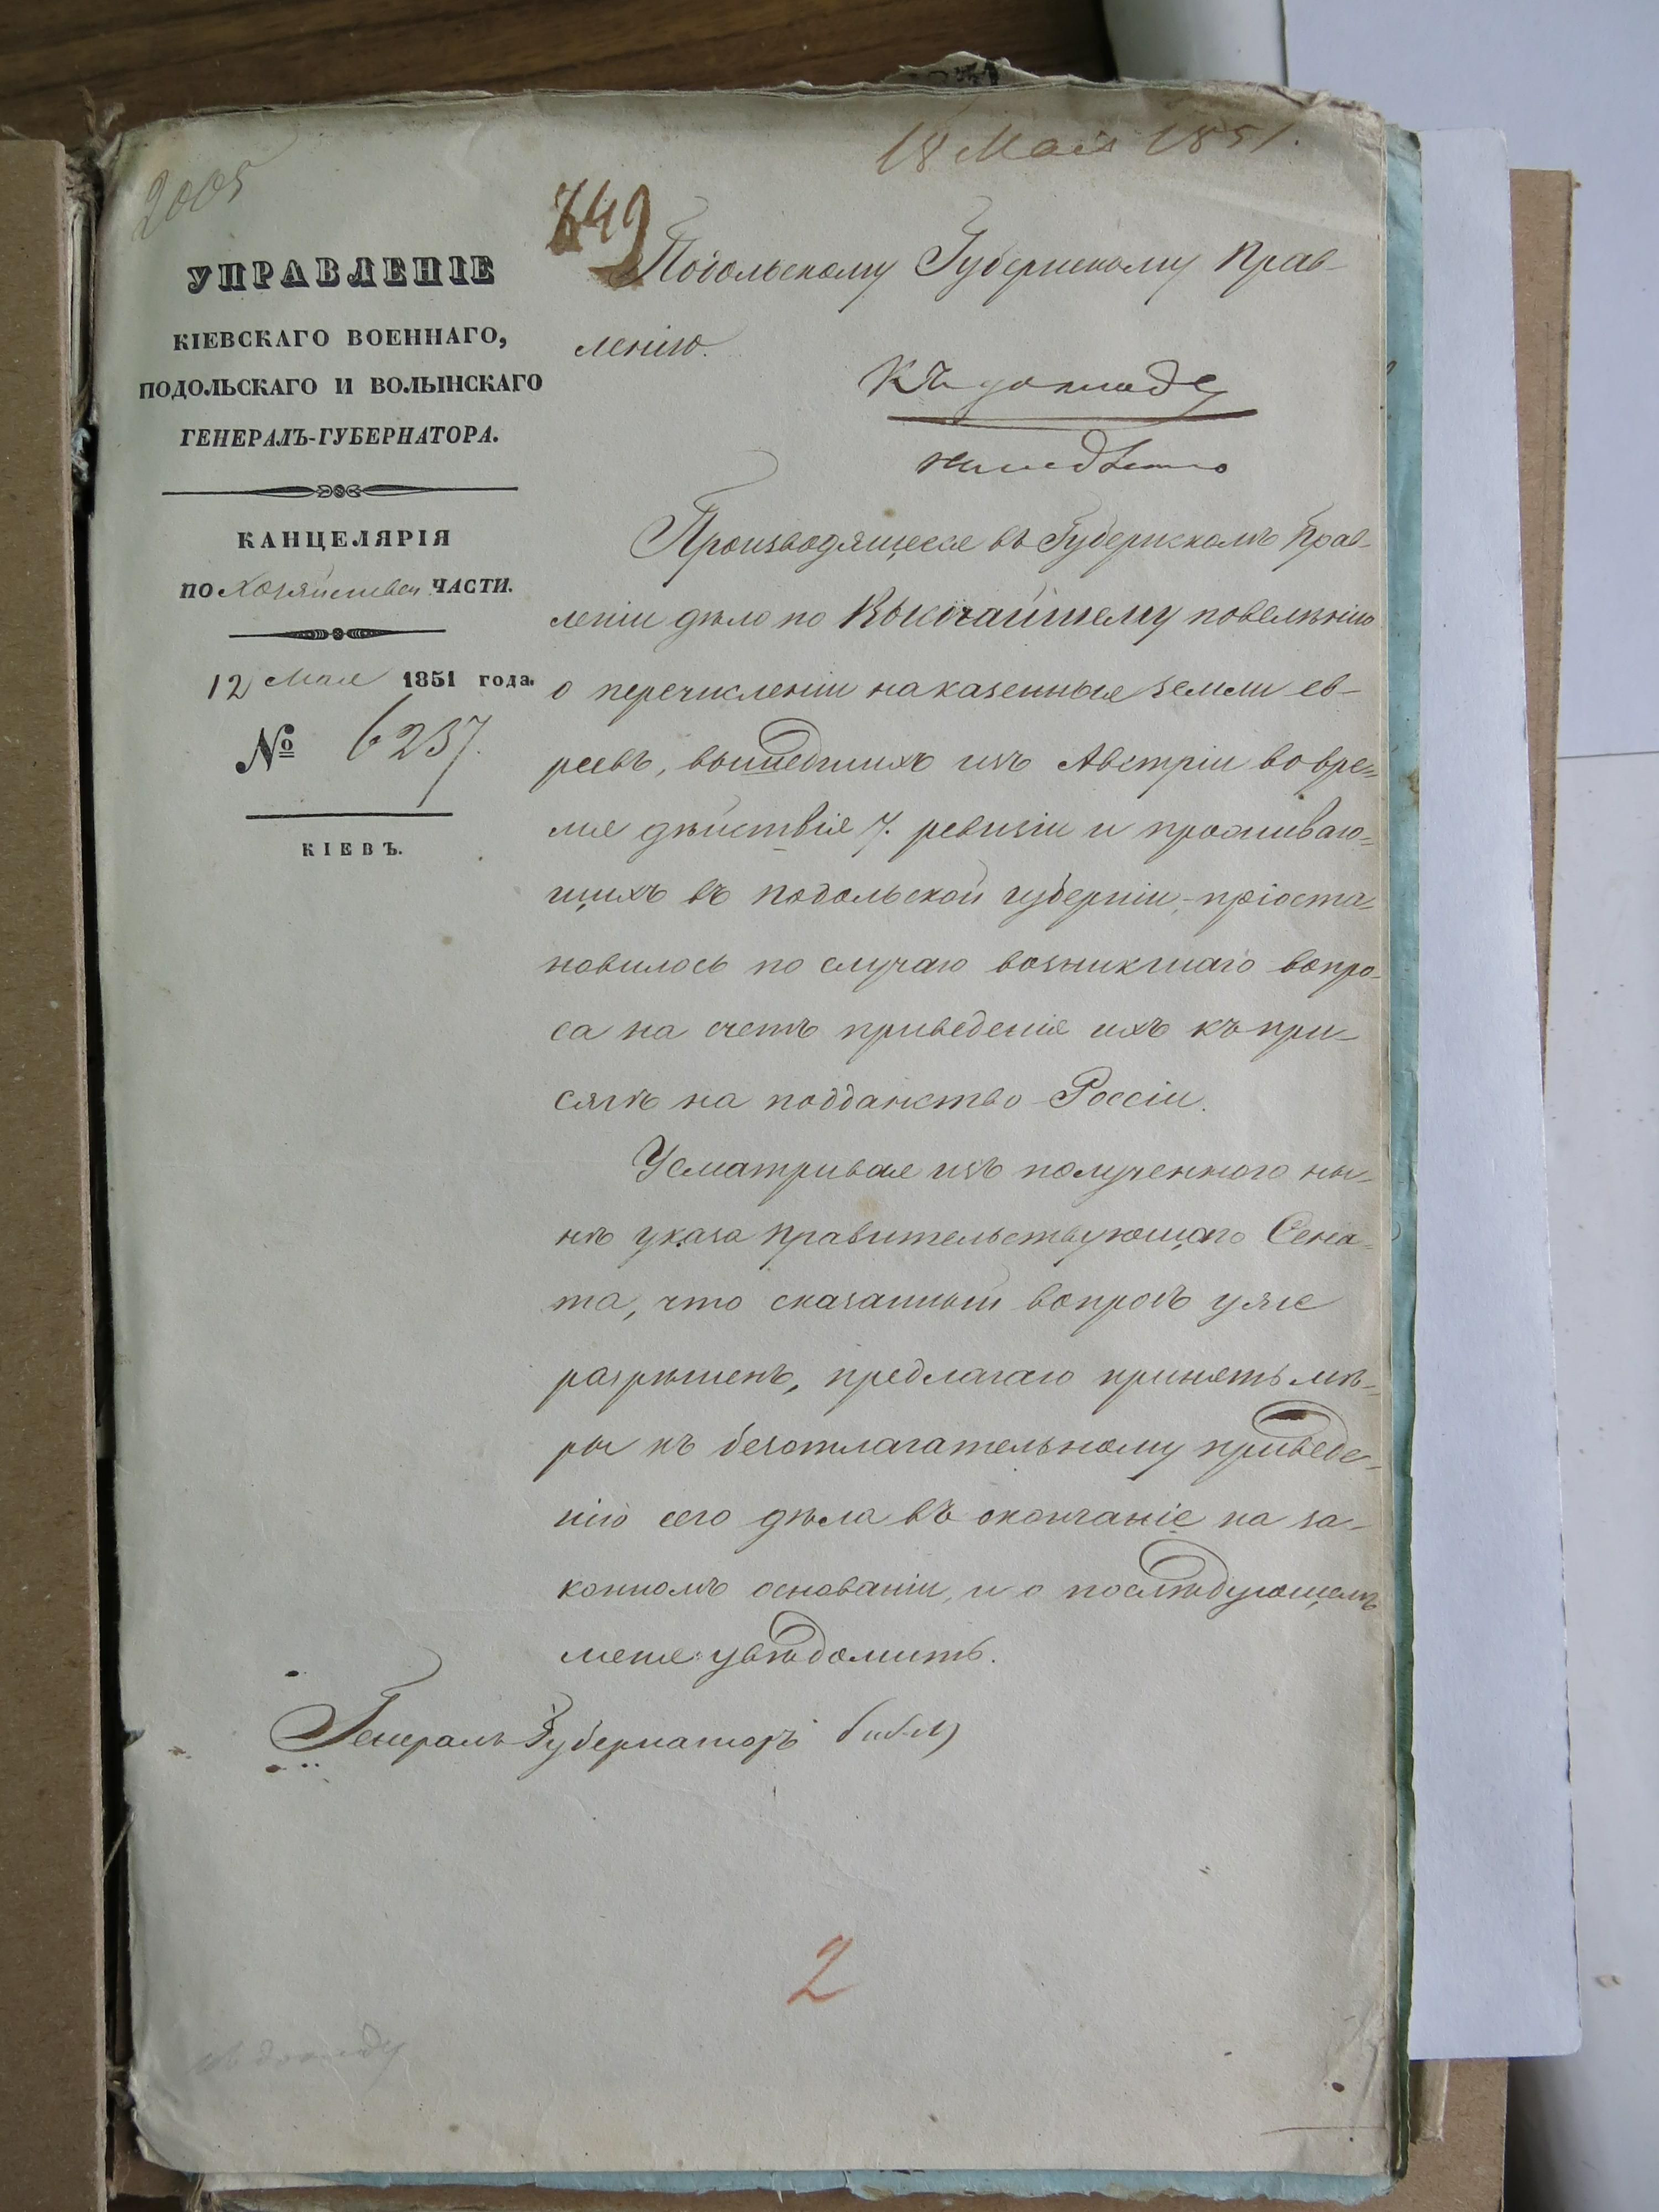 2005
18 Мая 1851.
749
УПРАВЛЕНІЕ
КІЕВСКАГО ВОЕННАГО,
ПОДОЛЬСКАГО И ВОЛЫНСКАГО
ГЕНЕРАЛЪ-ГУБЕРНАТОРА.
КАНЦЕЛЯРІЯ
ПО Хозяйствен ЧАСТИ.
12 Мая 1851 года.
№ 6237.
КІЕВЪ.
Подольскому Губернскому Прав-
ленію.
Къ докладу
Производящееся въ Губернскомъ Прав-
леніи дѣло по Высочайшему повелѣнію
о перечисленіи на казенныя земли ев-
реевъ, вышедшихъ изъ Австріи во вре-
мя дѣйствія 7. ревизіи и проживаю-
щихъ въ Подольской губерніи, – пріоста-
новилось по случаю возникшаго вопро-
са на счетъ приведенія ихъ къ при-
сягѣ на подданство Россіи.
Усматривая изъ полученного ны-
нѣ указа Правительствующаго Сена-
та, что сказанный вопросъ уже
разрѣшенъ, предлагаю принять мѣ-
ры къ безотлагательному приведе-
нію сего дѣла въ окончаніе на за-
конномъ основаніи, и о послѣдующемъ
меня увѣдомить.
Генералъ-Губернаторъ
2
къ докладу